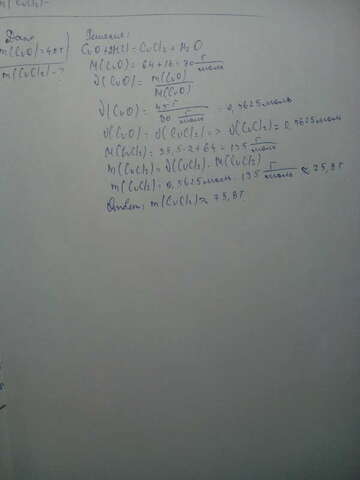 m(CuCl₂)-
Дано Решение:
m(CuO)=45г CuO+2HCl=CuCl₂+H₂O
m(CuCl₂)-? M(CuO)=64+16=80 г/моль
ν(CuO)= m(CuO)/M(CuO)
ν(CuO)= 45г/80 г/моль = 0,5625моль
ν(CuO)=ν(CuCl₂)=> ν(CuCl₂)=0,5625моль
M(CuCl₂)=35,5·2+64=135 г/моль
m(CuCl₂)=ν(CuCl₂)·M(CuCl₂)
m(CuCl₂)=0,5625моль·135 г/моль ≈ 75,9г
Ответ: m(CuCl₂)≈75,9г